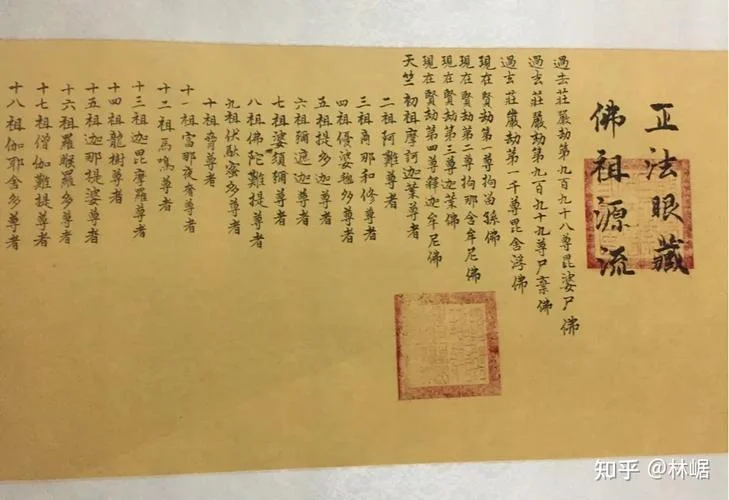 正法眼藏
佛祖源流
過去莊嚴劫第九百九十八尊毘婆尸佛
過去莊嚴劫第九百九十九尊尸棄佛
過去莊嚴劫第一千尊毘舍浮佛
現在賢劫第一尊拘留孫佛
現在賢劫第二尊拘那含牟尼佛
現在賢劫第三尊迦葉佛
現在賢劫第四尊釋迦牟尼佛
天竺初祖摩訶迦葉尊者
二祖阿難尊者
三祖商那和修尊者
四祖優婆毱多尊者
五祖提多迦尊者
六祖彌遮迦尊者
七祖婆須彌尊者
八祖佛陀難提尊者
九祖伏馱蜜多尊者
十祖脅尊者
十一祖富那夜奢尊者
十二祖馬鳴尊者
十三祖迦毘摩羅尊者
十四祖龍樹尊者
十五祖迦那提婆尊者
十六祖羅睺羅多尊者
十七祖僧伽難提尊者
十八祖伽耶舍多尊者
知乎 @林崌